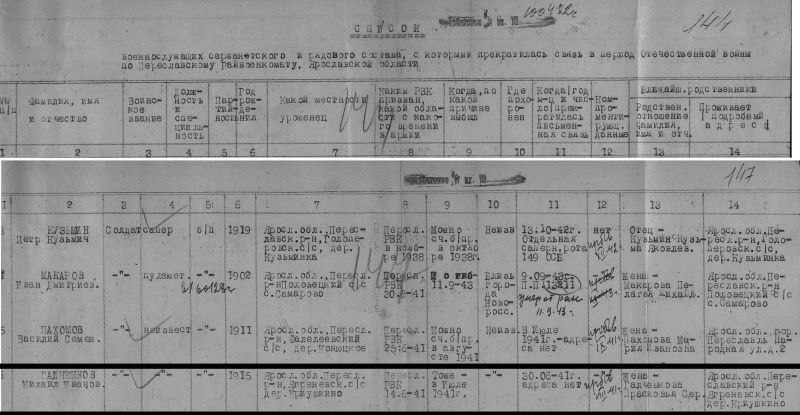 100432с
141/1
СПИСОК
военнослужащих сержантского и рядового состава, с которыми прекратилась связь в период Отечественной войны
по Переславскому Райвоенкомату, Ярославской области
Фамилия, имя и отчество
Воинское звание
Должность и специальность
Партийность
Год рождения
Какой местности уроженец
Каким РВК призван, какой области с какого времени в армии
Когда, по какой причине выбыл
Где похоронен
Когда год м-ц и число прекратилась письменная связь
Компрометирующ. данные
Ближайш. родственники
Родствен. отношение фамилия, имя и отч.
Проживает подробный адрес
1 2 3 4 5 6 7 8 9 10 11 12 13 14
147
2 3 4 5 6 7 8 9 10 11 12 13 14
КУЗЬМИН Солдат сапер б/п 1919 Яросл. обл. Перес- Пересл. Можно Неизв 13.10-42г. нет Отец - Яросл. обл. Пе-
Петр Кузьмич лавск. р-н, Голопе- РВК сч. б/пр. Отдельная Кузьмин Кузь- ресл. р-н, Голо-
ровск. с/с, дер. в нояб- в октяб- саперн. рота ма Яковлев. перовск. с/с,
Кузьминка ре 1938 ре 1938г. 149 ОСБ дер. Кузьминка
МАКАРОВ -"- пулемет. -"- 1902 Яросл. обл. Пересл. Пересл. Погиб Близь 9.09-43г. Жена - Яросл. обл. Пе-
Иван Дмитриев. р-н Половецкий с/с РВК 11.9-43 горо- П.П. 13811 Макарова Пе- реславск. р-н
с. Самарово 30.8-41 да Ново- лагея Михайл. Половецкий с/с
росс. 11.9.43г. с. Самарово
ПАХОМОВ -"- неизвест -"- 1911 Яросл. обл. Пересл. Пересл. Можно Неизв. В Июле Жена - Яросл. обл. гор.
Василий Семен. р-н, Фалелеевский РВК сч. б/пр. 1941г. -адре- Пахомова Ма- Переславль На-
с/с, дер. Конюцкое 25.6-41 в авгу- са нет рия Ивановна родная ул. д. 2
сте 1941
ГАЛЧЕНКОВ -"- -"- -"- 1915 Яросл. обл. Пересл. Пересл. Тоже - -"- 30.06-41г. Жена - Яросл. обл. Пере-
Михаил Иванов. р-н, Ягреневск. с/с РВК в Июле адреса нет Галченкова славский р-н
дер. Криушкино 14.6-41 1941г. Прасковья Сер. Ягреневск. с/с
дер. Криушкино